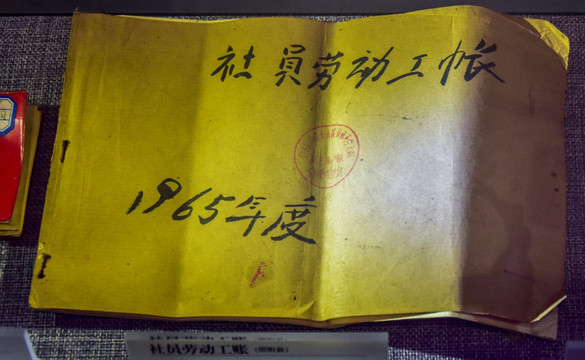 社员劳动工帐
1965年度
社员劳动工账